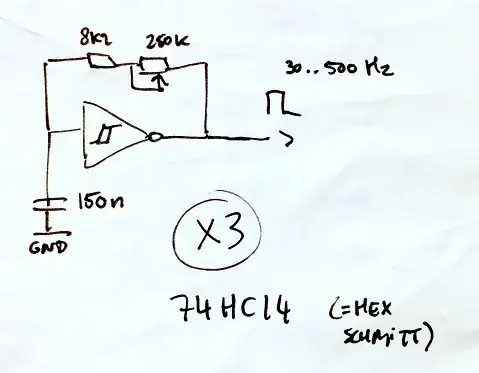 8k2 250k
30..500 Hz
150n
GND
x3
74HC14 (=HEX
SCHMITT)